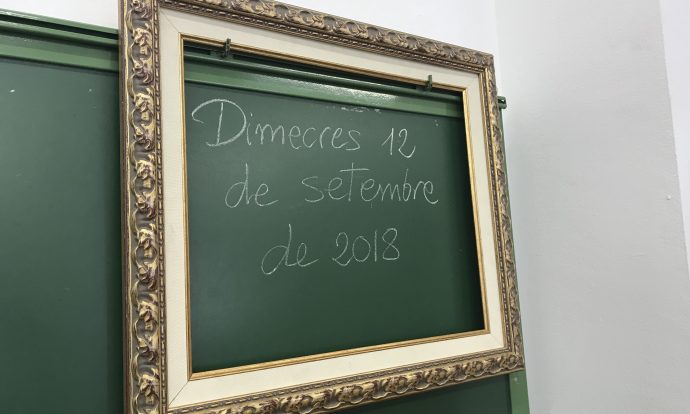 Dimecres 12
de setembre
de 2018